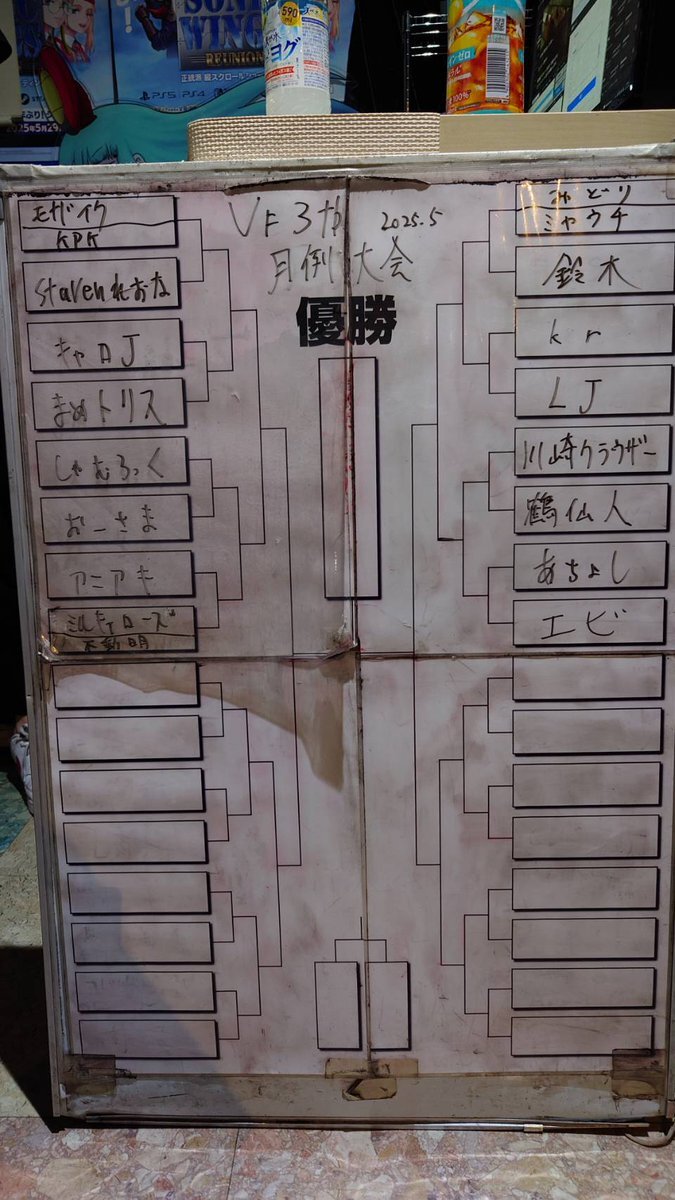 SONI
WING
REUNION
正統派 縦スクロールシ
PS5 PS4
2025年5月29
590
ヨグ
ゼロ
100%
VF3tb 2025.5
月例大会
優勝
モザイク
KPK
Stavenれおな
キャロJ
まめトリス
しゃむろっく
おーさま
アニアキ
ミルキィローズ
不動明
みどり
ミヤウチ
鈴木
kr
LJ
川崎クラウザー
鶴仙人
あちょし
エビ